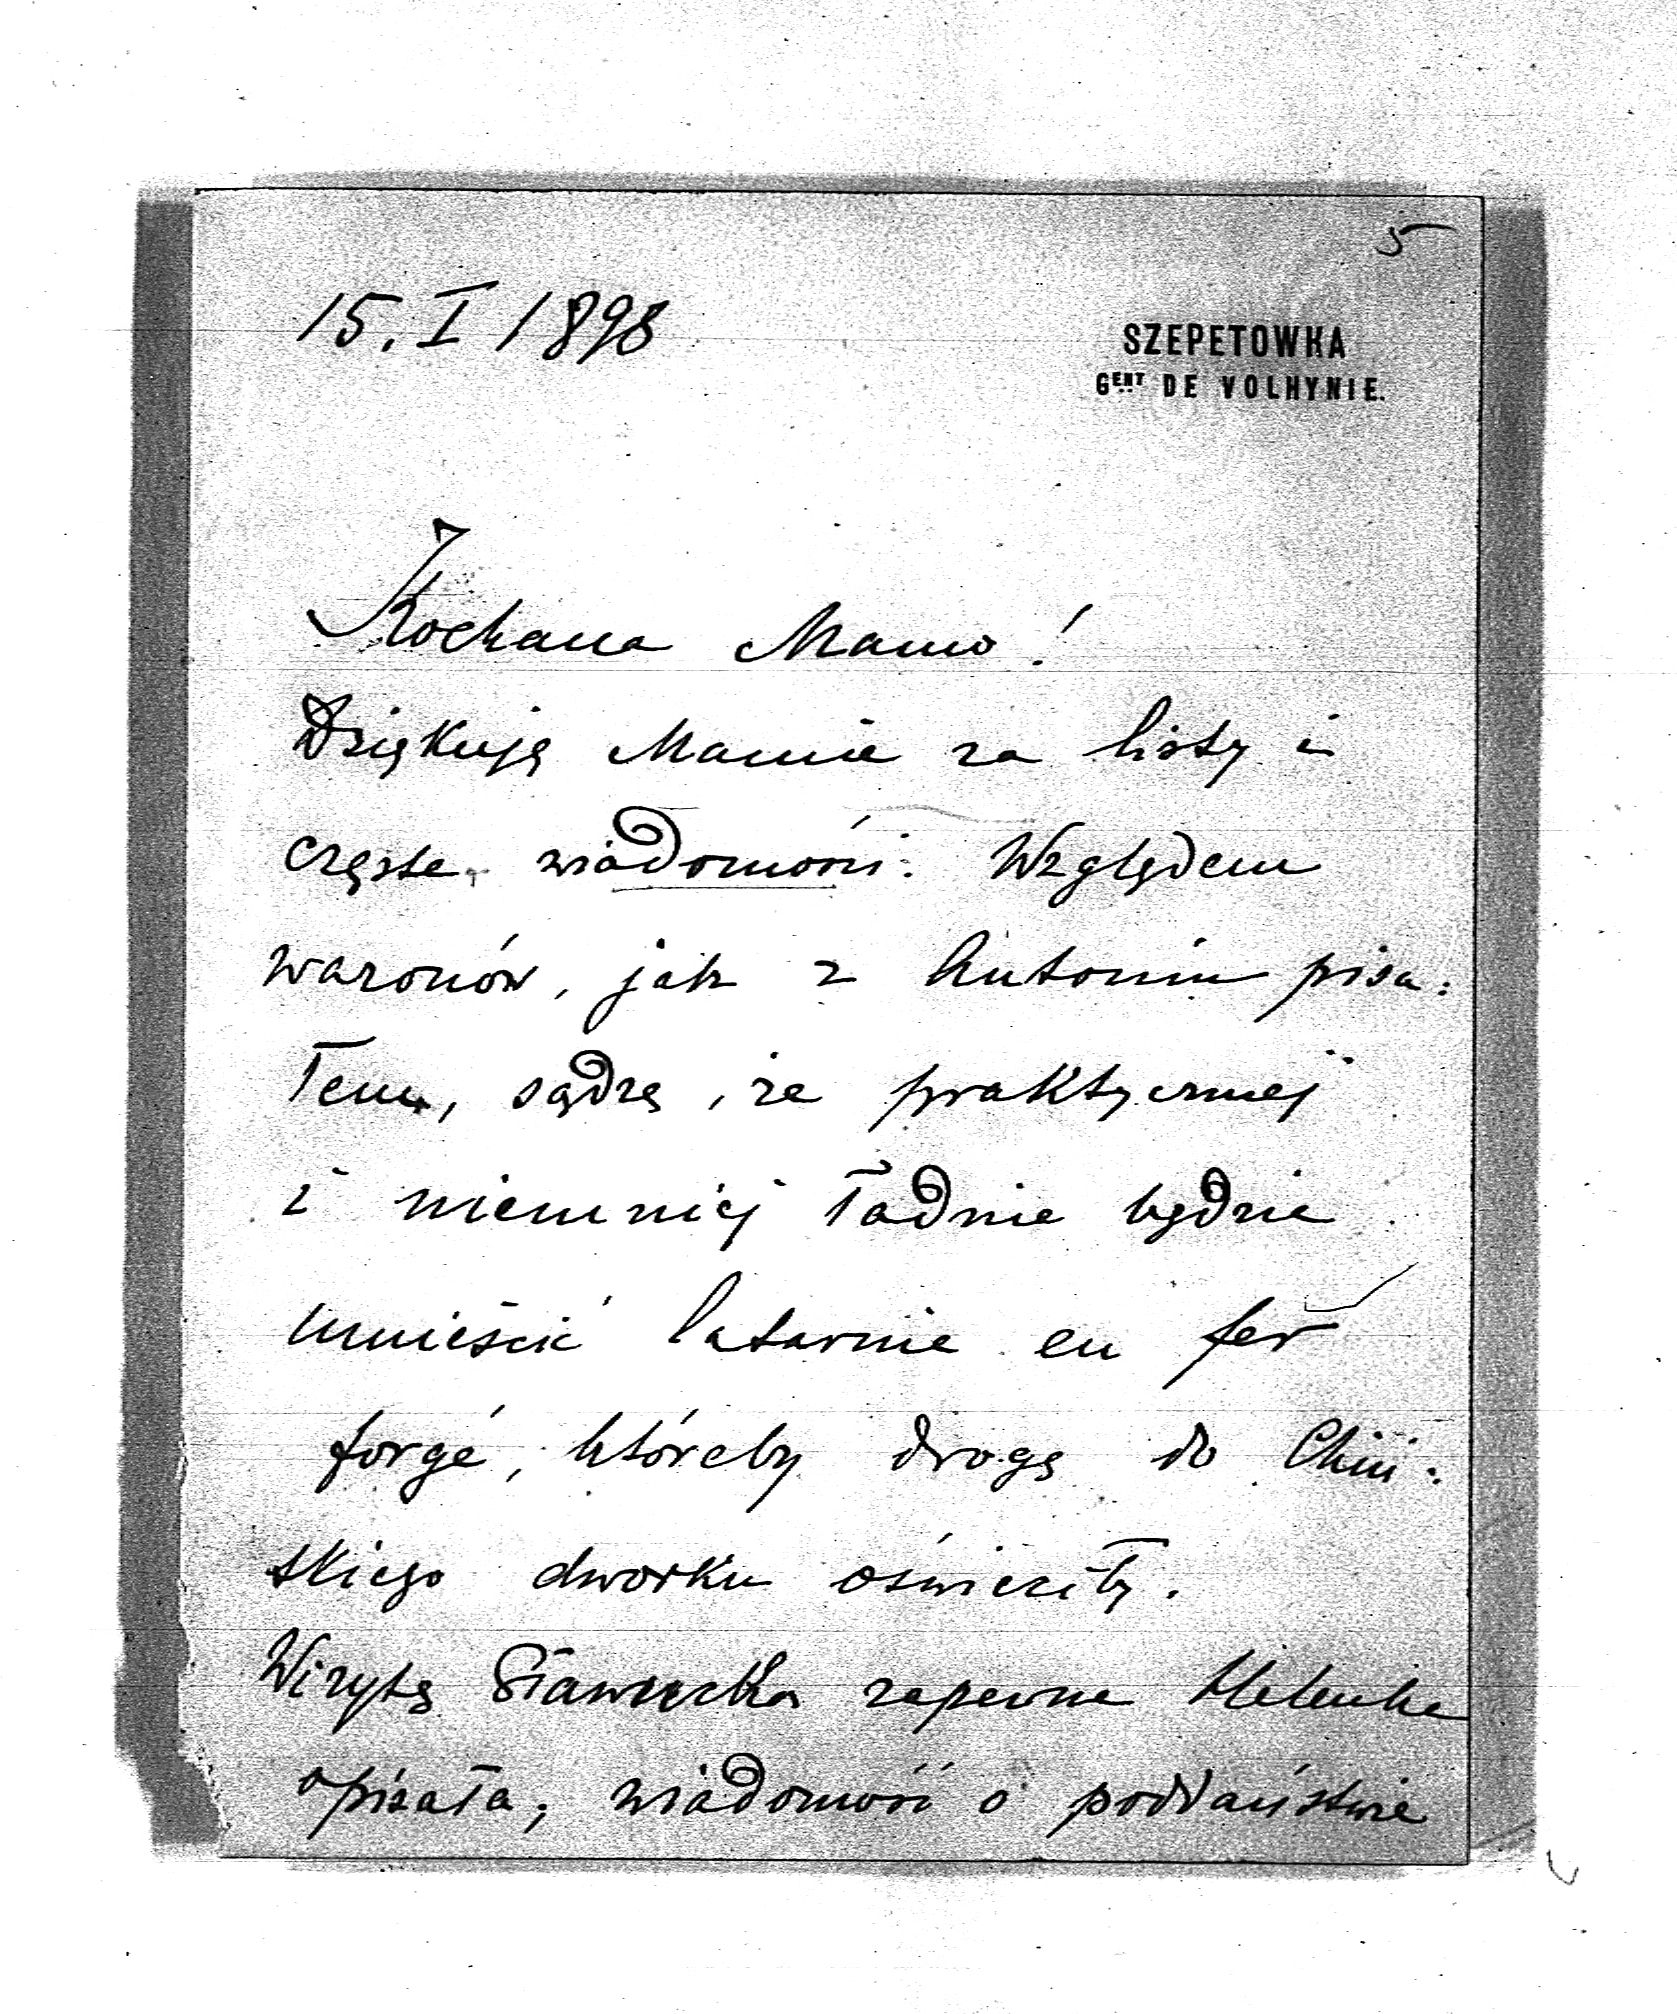 5
15. I 1898
SZEPETOWKA
GENT DE VOLHYNIE.
Kochana Mamo!
Dziękuję Mamie za listy i
częste wiadomości. Względem
wazonów, jak z Antonin pisa:
łem, sądzę, że praktyczniej
i niemniej ładnie będzie
umieścić latarnie en fer
forgé, któreby drogę do Chiń:
skiego dworku oświeciły.
Wizytę Sławucką zapewne Helenka
opisała; wiadomość o poddaństwie